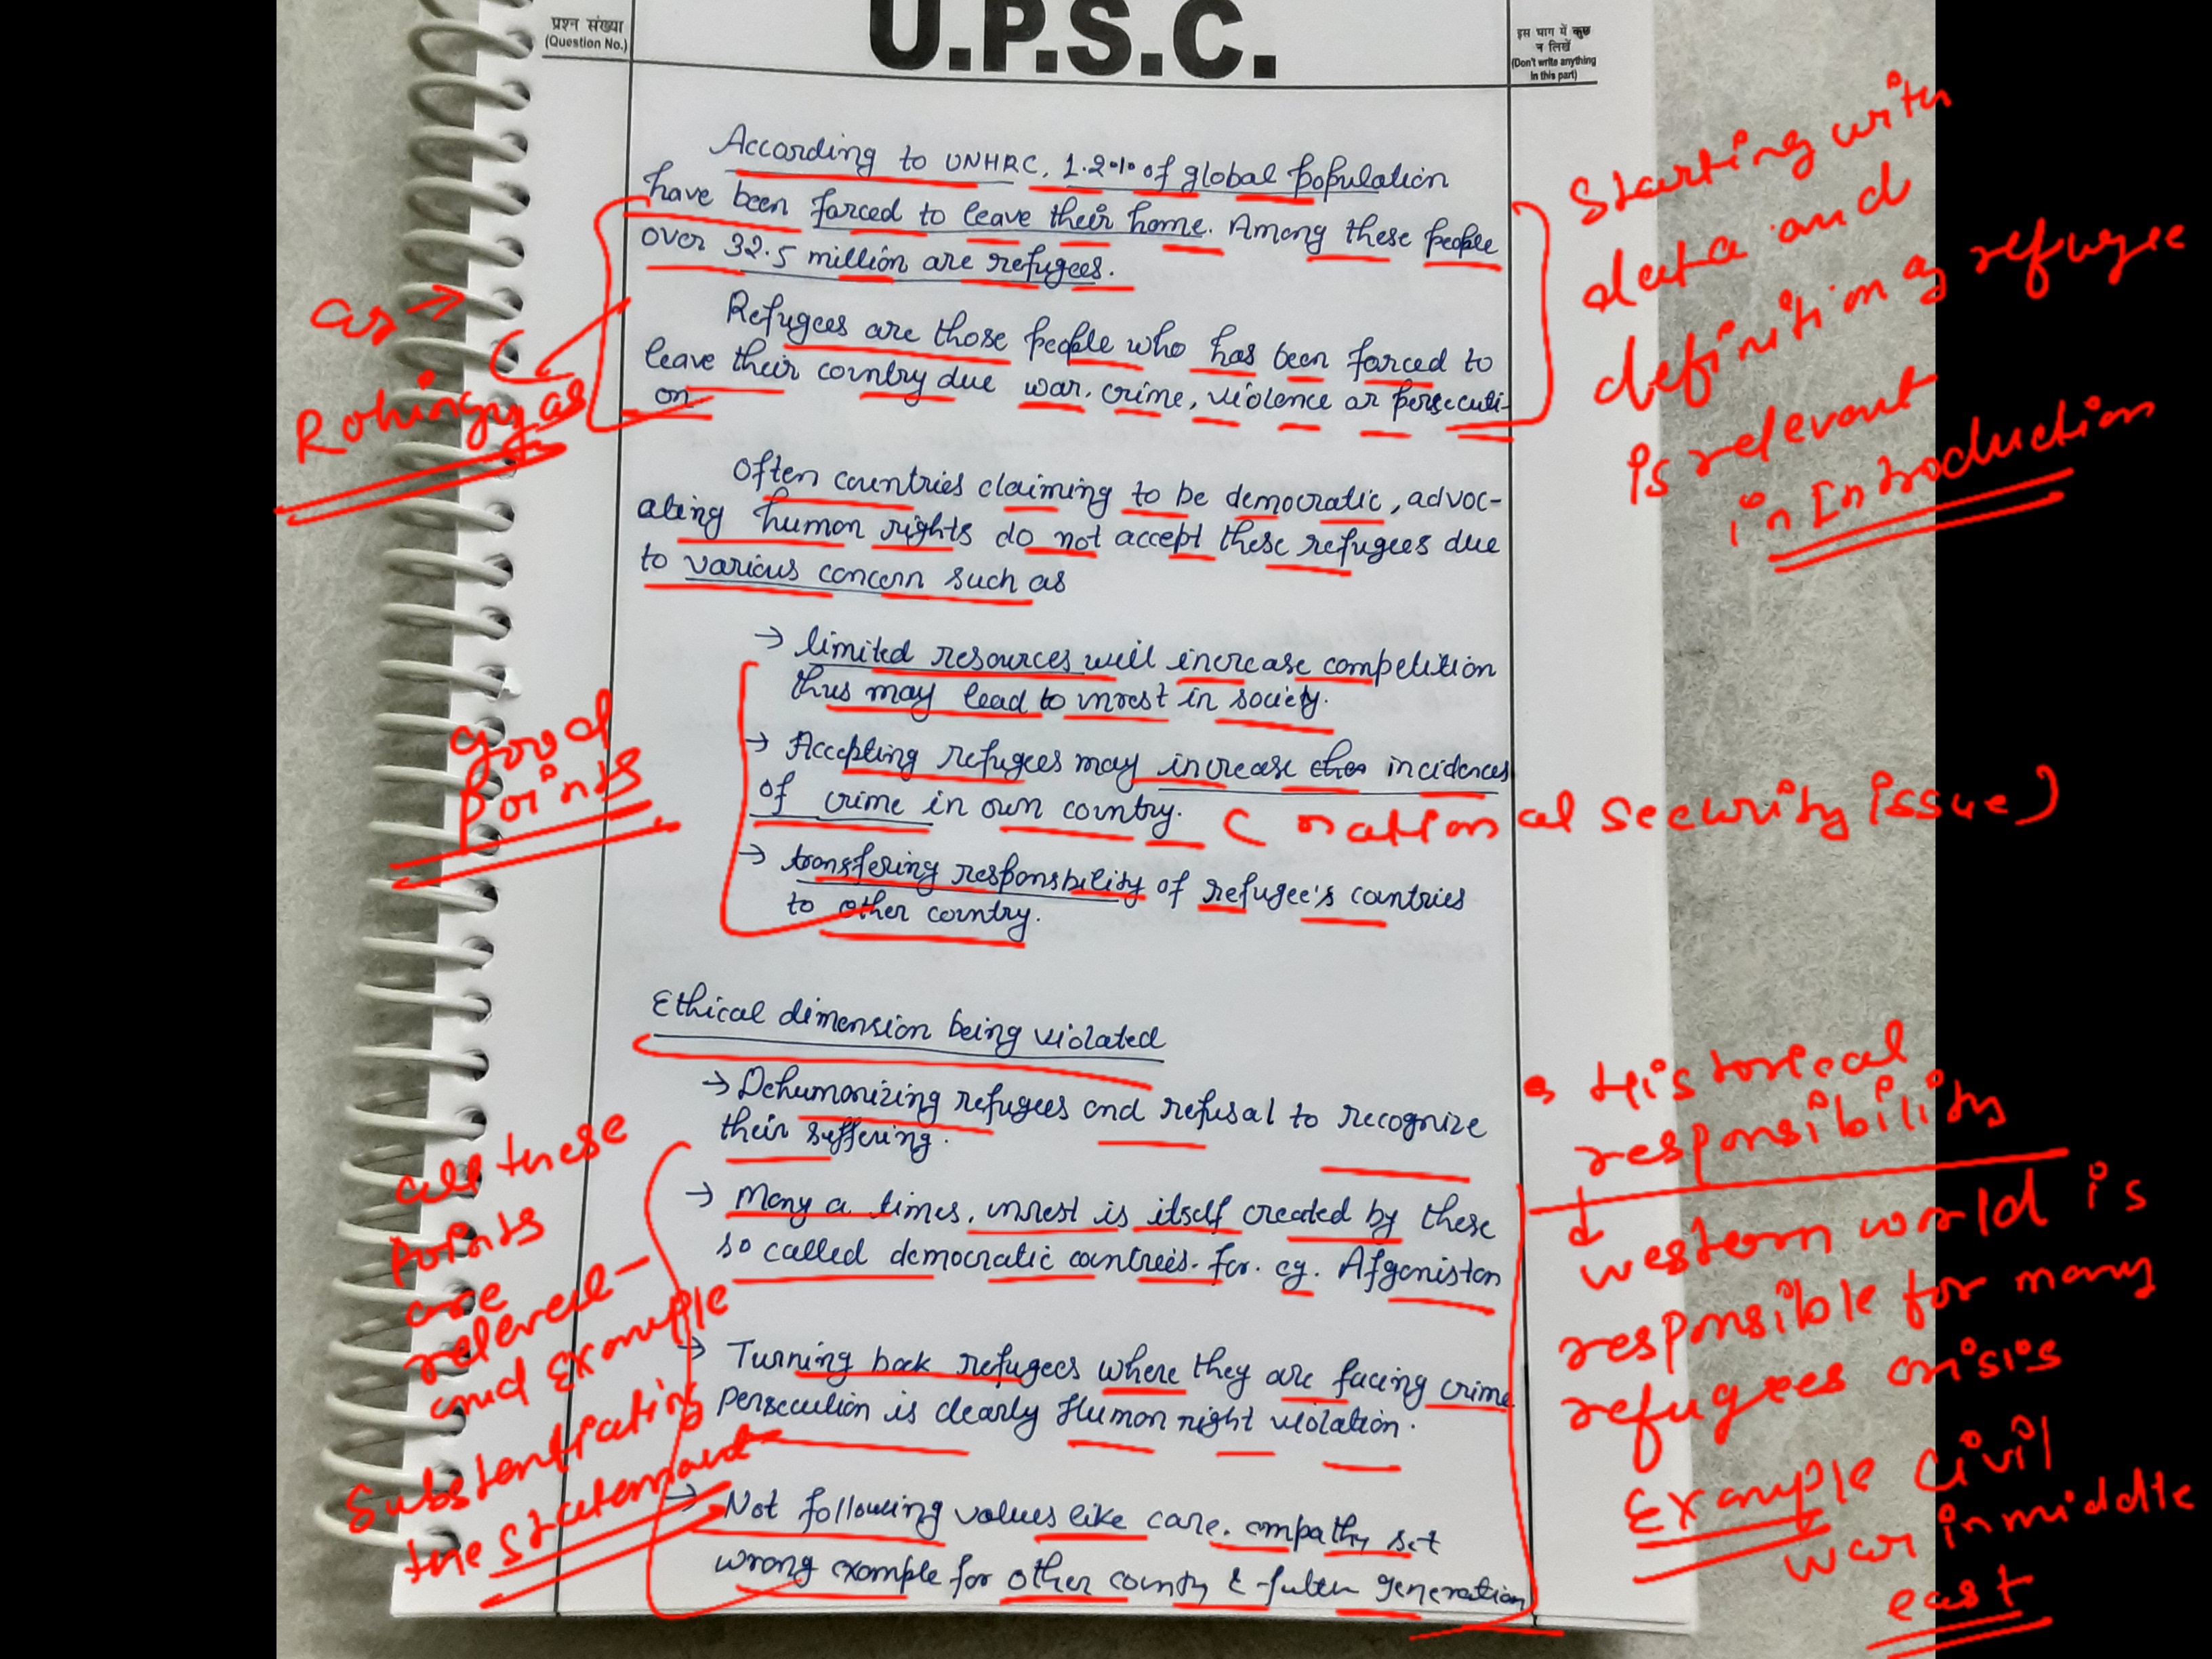 प्रश्न संख्या
(Question No.)
U.P.S.C.
इस भाग में कुछ
न लिखें
(Don't write anything
in this part)
According to UNHRC, 1.2% of global population
have been forced to leave their home. Among these people
over 32.5 million are refugees.
Refugees are those people who has been forced to
leave their country due war, crime, violence or persecuti-
on
Starting with
data and
definition of refugee
is relevant
in Introduction
as →
Rohingyas
Often countries claiming to be democratic, advoc-
ating human rights do not accept these refugees due
to various concern such as
→ limited resources will increase competition
thus may lead to unrest in society.
→ Accepting refugees may increase incidences
of crime in own country. (national security issue)
→ transfering responsbility of refugee's countries
to other country.
good
points
Ethical dimension being violated
→ Dehumanizing refugees and refusal to recognize
their suffering.
→ Many a times, unrest is itself created by these
so called democratic countries. for. eg. Afganistan
→ Turning back refugees where they are facing crime
persecution is clearly Human right violation.
→ Not following values like care, empathy set
wrong example for other county & futur generation
all these
points
are
relevent
and example
substentiating
the statemant
• Historical
responsibility
↓
western world is
responsible for many
refugees crisis
Example civil
war in middle
east